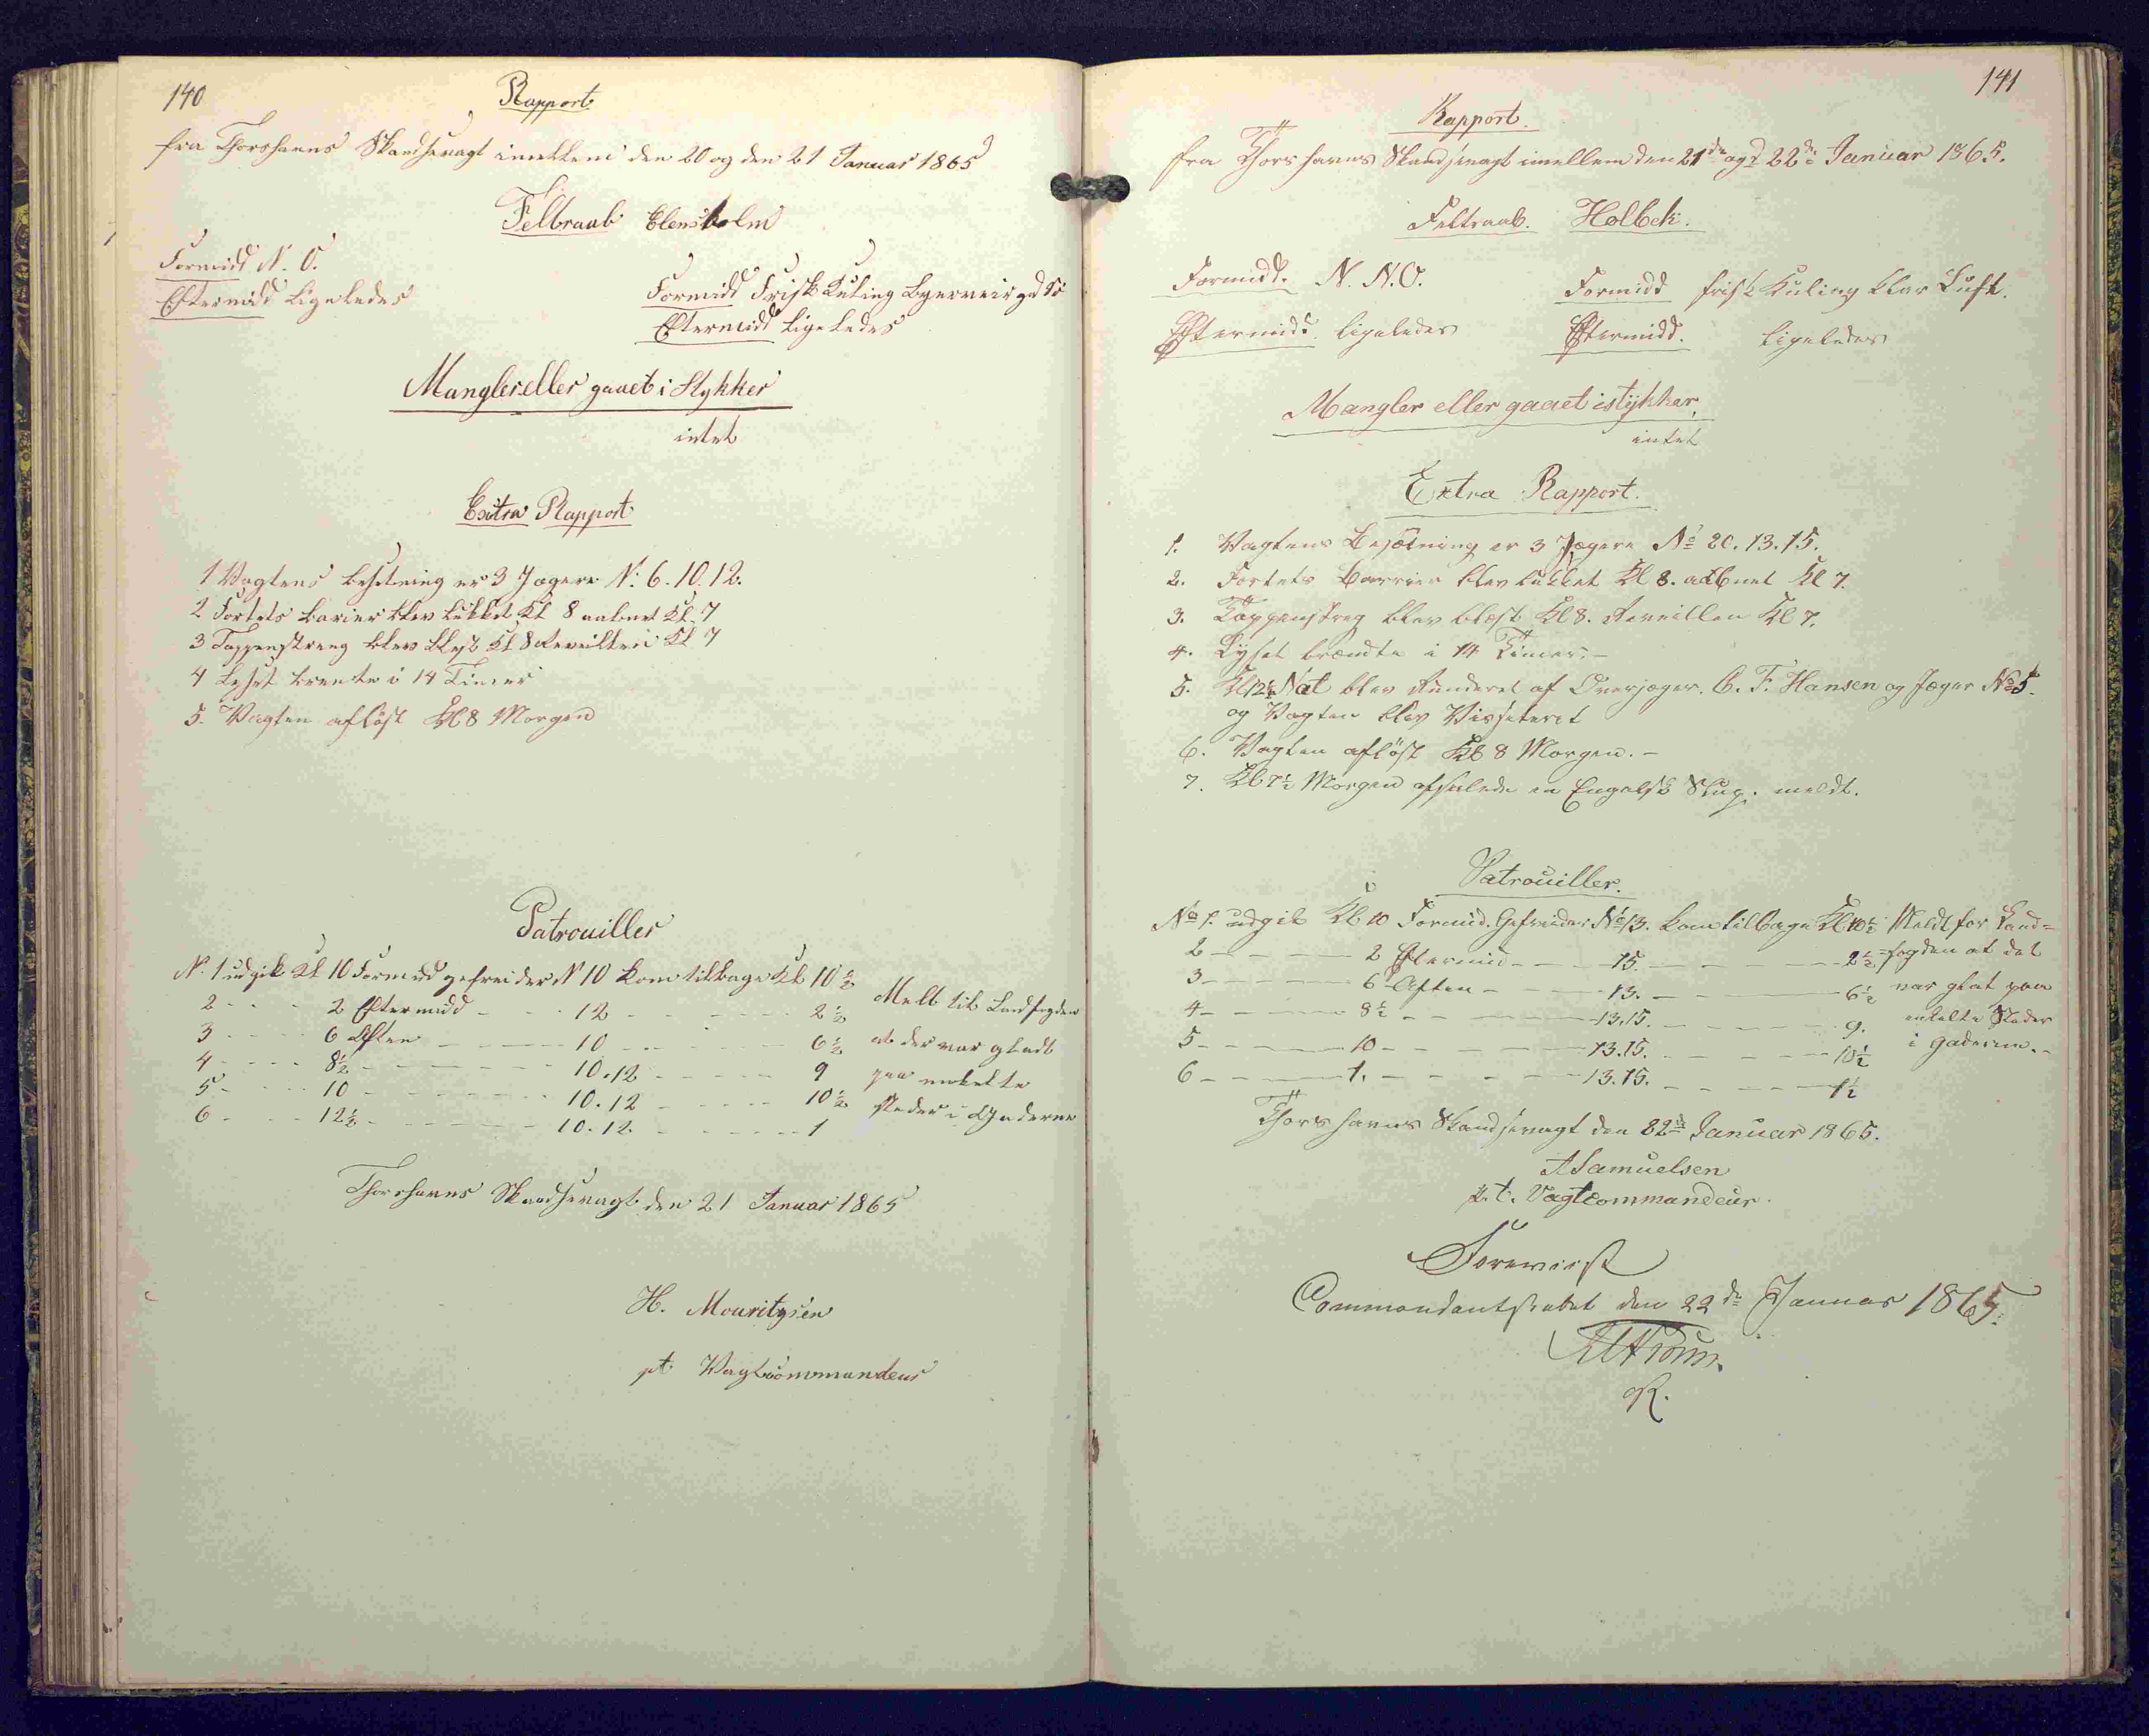 140
Rapport
fra Thorshavns Skandsevagt imellem den 20 og den 21 Januar 1865
Feltraab Elensholm
Formidd N. O.
Eftermidd Ligeledes
Formidd Frisk Kuling
Eftermidd Ligeledes
Mangler eller gaaet i Stykker
intet
Extra Rapport
1 Vagtens Besetning er 3 Jægere N: 6. 10. 12.
2 Fortets Barier blev lukket Kl 8 aabnet Kl. 7
3 Tappenstreng blev blest Kl 8 Reveillen Kl 7
4 Lyset brente i 14 Timer
5. Vagten aflöst Kl 8 Morgen
Patrouiller
N: 1 udgik Kl 10 Formidd gefreider N 10 kom tilbage Kl 10½
2 - - - 2 Eftermidd - - - 12 - - - - - 2½
3 - - - 6 Aften - - - 10 - - - - - 6½
4 - - - 8½ - - - - - 10. 12 - - - - 9
5 - - - 10 - - - - - 10. 12 - - - - 10½
6 - - - 12½ - - - - - 10. 12. - - - - 1
Melt til Landfogden
at der var gladt
paa enkelte
steder i Gaderne
Thorshavns Skandsevagt den 21 Januar 1865
H. Mouritzsen
pt Vagtcommandeur
141
Rapport.
fra Thorshavns Skandsevagt imellem den 21de og d 22de Januar 1865.
Feltraab. Holbek.
Formidd. N. N. O.
Eftermidd. ligeledes
Formidd frisk Kuling klar Luft.
Eftermidd. ligeledes
Mangler eller gaaet istykker,
intet
Extra Rapport.
1. Vagtens Besætning er 3 Jægere No 20. 13. 15.
2. Fortets Barrier blev lukket Kl 8. aabnet Kl 7.
3. Tappenstreg blev blæst Kl 8. Reveillen Kl 7.
4. Lyset brændte i 14 Timer. -
5. Kl 12½ Nat blev Runderet af Overjæger. C. F. Hansen og Jæger No 5.
og Vagten blev Visseteret
6. Vagten aflöst Kl 8 Morgen. -
7. Kl 7½ Morgen afseilede en Engelsk Slup. meldt.
Patrouiller.
No 1. udgik Kl 10 Formid. Gefreider No 13. kom tilbage Kl 10½
2 - - - - 2 Eftermid - - - 15. - - - - - 2½
3 - - - - 6 Aften - - - 13. - - - - - 6½
4 - - - - 8½ - - - - 13. 15. - - - - 9.
5 - - - - 10 - - - - 13. 15. - - - - 10½
6 - - - - 1. - - - - 13. 15. - - - - 1½
Meldt for Land=
=fogden at det
var glat paa
enkelte Steder
i Gaderne. -
Thorshavns Skandsevagt den 22de Januar 1865.
A Samuelsen
p. t. Vagtcommandeur.
Forevist
Commandantskabet den 22de Januar 1865.